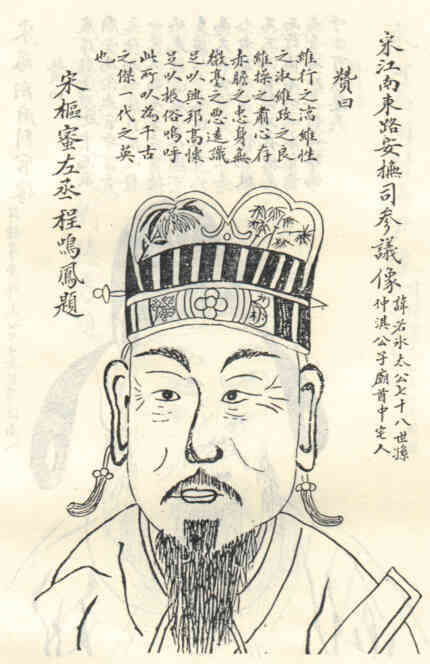 宋江南東路安撫司参議像
諱若水太公七十八世孫
仲淇公子廟首中宅人
贊曰
維行之維性
之淑維政之良
維操之肅心存
赤膽之忠身無
毫之遠識
足以興邦高懷
足以振俗嗚呼
此所以為千古
之傑一代之英
也
宋樞蜜左丞程鳴鳳題